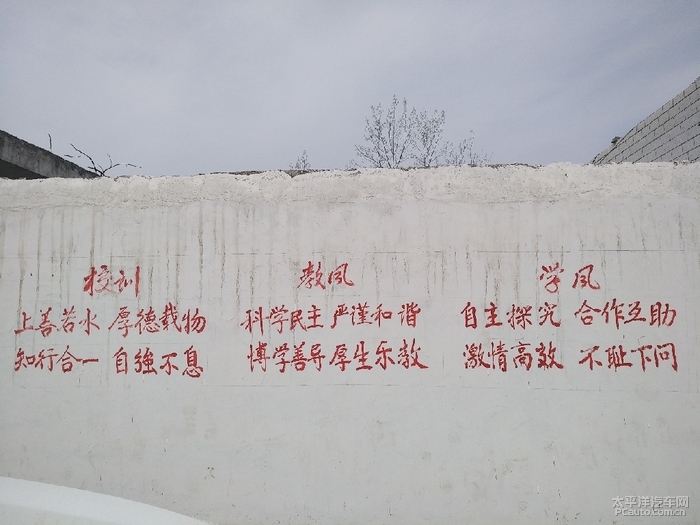 校训
上善若水 厚德载物
知行合一 自強不息
教风
科学民主 严谨和谐
博学善导 厚生乐教
学风
自主探究 合作互助
激情高效 不耻下问
太平洋汽车网
PCauto.com.cn